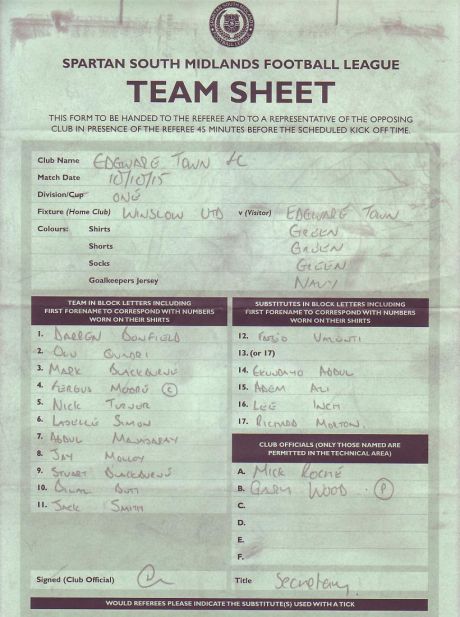 SPARTAN SOUTH MIDLANDS FOOTBALL LEAGUE
TEAM SHEET
THIS FORM TO BE HANDED TO THE REFEREE AND TO A REPRESENTATIVE OF THE OPPOSING
CLUB IN PRESENCE OF THE REFEREE 45 MINUTES BEFORE THE SCHEDULED KICK OFF TIME.
Club Name EDGWARE TOWN FC
Match Date 10/10/15
Division/Cup ONE
Fixture (Home Club) WINSLOW UTD v (Visitor) EDGWARE TOWN
Colours: Shirts GREEN
Shorts GREEN
Socks GREEN
Goalkeepers Jersey NAVY
TEAM IN BLOCK LETTERS INCLUDING
FIRST FORENAME TO CORRESPOND WITH NUMBERS
WORN ON THEIR SHIRTS
1. DARREN BONFIELD
2. OLU
3. MARK BLACKBURNE
4. FERGUS MOORE C
5. NICK TURNER
6. SIMON
7. ABDUL
8. JAY MOLLOY
9. STUART BLACKBURNE
10. BILAL BUTT
11. JACK SMITH
SUBSTITUTES IN BLOCK LETTERS INCLUDING
FIRST FORENAME TO CORRESPOND WITH NUMBERS
WORN ON THEIR SHIRTS
12. FABIO
13. (or 17)
14. ABDUL
15. ADEM ALI
16. LEE INCH
17. RICHARD MORTON
CLUB OFFICIALS (ONLY THOSE NAMED ARE
PERMITTED IN THE TECHNICAL AREA)
A. MICK ROCHE
B. GARY WOOD P
C.
D.
E.
F.
Signed (Club Official) Title Secretary
WOULD REFEREES PLEASE INDICATE THE SUBSTITUTE(S) USED WITH A TICK